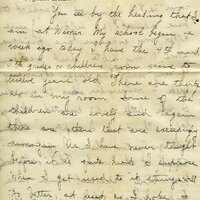 You see by the heading that I
am at Wisner. My school began a
week ago today. I have the 4th and
5th grades or children from nine to
twelve years old. There are
in my room. Some of the
children are lovely and again
there are others that are exceedingly
I have never taught
before it is quite hard I suppose
When I get used to it things will
go better, at least so I hope. I